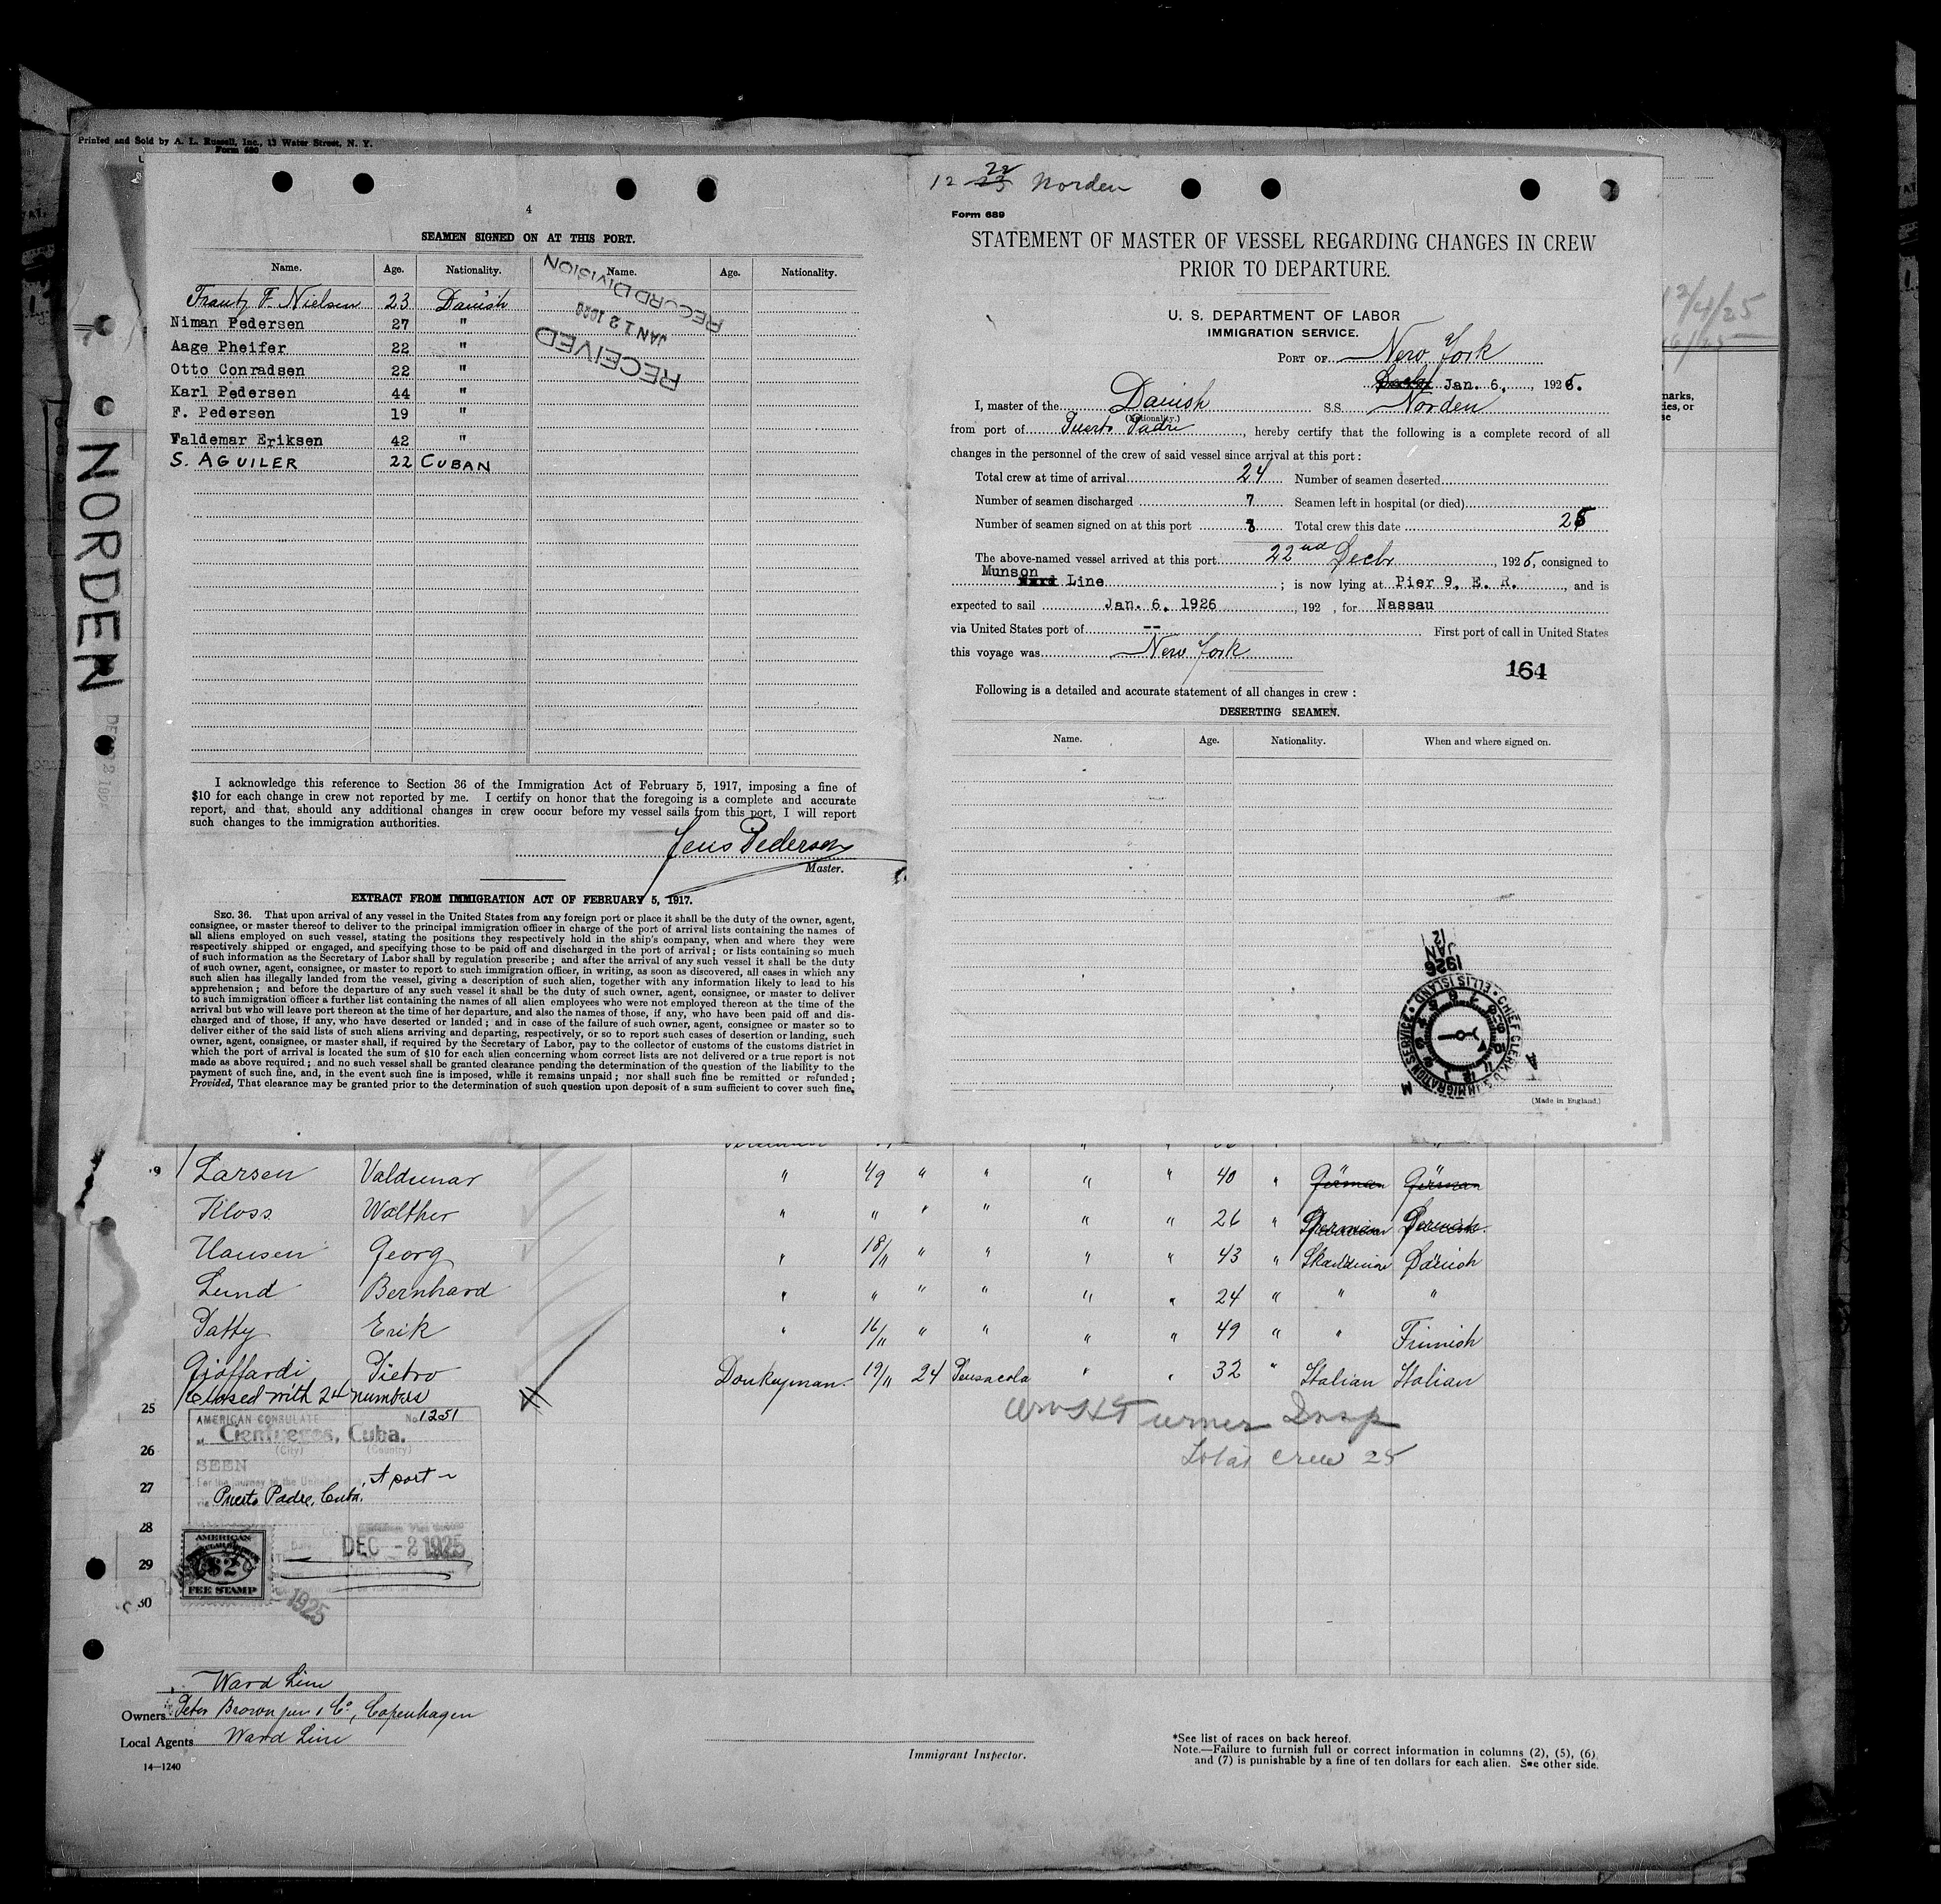 Printed and Sold by A. L. Russell, Inc., 13 Water Street, N. Y.
Form 680
4
SEAMEN SIGNED ON AT THIS PORT.
Name. Age. Nationality. Name. Age. Nationality.
Frantz F. Nielsen 23 Danish
Niman Pedersen 27 "
Aage Pheifer 22 "
Otto Conradsen 22 "
Karl Pedersen 44 "
F. Pedersen 19 "
Valdemar Eriksen 42 "
S. AGUILER 22 CUBAN
RECEIVED
JAN 12 1926
RECORD DIVISION
I acknowledge this reference to Section 36 of the Immigration Act of February 5, 1917, imposing a fine of
$10 for each change in crew not reported by me. I certify on honor that the foregoing is a complete and accurate
report, and that, should any additional changes in crew occur before my vessel sails from this port, I will report
such changes to the immigration authorities.
Jens Pedersen
Master.
EXTRACT FROM IMMIGRATION ACT OF FEBRUARY 5, 1917.
SEC. 36. That upon arrival of any vessel in the United States from any foreign port or place it shall be the duty of the owner, agent,
consignee, or master thereof to deliver to the principal immigration officer in charge of the port of arrival lists containing the names of
all aliens employed on such vessel, stating the positions they respectively hold in the ship's company, when and where they were
respectively shipped or engaged, and specifying those to be paid off and discharged in the port of arrival; or lists containing so much
of such information as the Secretary of Labor shall by regulation prescribe; and after the arrival of any such vessel it shall be the duty
of such owner, agent, consignee, or master to report to such immigration officer, in writing, as soon as discovered, all cases in which any
such alien has illegally landed from the vessel, giving a description of such alien, together with any information likely to lead to his
apprehension; and before the departure of any such vessel it shall be the duty of such owner, agent, consignee, or master to deliver
to such immigration officer a further list containing the names of all alien employees who were not employed thereon at the time of the
arrival but who will leave port thereon at the time of her departure, and also the names of those, if any, who have been paid off and dis-
charged and of those, if any, who have deserted or landed; and in case of the failure of such owner, agent, consignee or master so to
deliver either of the said lists of such aliens arriving and departing, respectively, or so to report such cases of desertion or landing, such
owner, agent, consignee, or master shall, if required by the Secretary of Labor, pay to the collector of customs of the customs district in
which the port of arrival is located the sum of $10 for each alien concerning whom correct lists are not delivered or a true report is not
made as above required; and no such vessel shall be granted clearance pending the determination of the question of the liability to the
payment of such fine, and, in the event such fine is imposed, while it remains unpaid; nor shall such fine be remitted or refunded;
Provided, That clearance may be granted prior to the determination of such question upon deposit of a sum sufficient to cover such fine.
NORDEN
12 22 23 Norden
Form 689
STATEMENT OF MASTER OF VESSEL REGARDING CHANGES IN CREW
PRIOR TO DEPARTURE.
U. S. DEPARTMENT OF LABOR
IMMIGRATION SERVICE.
PORT OF New York
Jan. 6, 1926.
I, master of the Danish S.S. Norden
(Nationality.)
from port of Puerto Padre, hereby certify that the following is a complete record of all
changes in the personnel of the crew of said vessel since arrival at this port:
Total crew at time of arrival 24 Number of seamen deserted
Number of seamen discharged 7 Seamen left in hospital (or died)
Number of seamen signed on at this port 8 Total crew this date 25
The above-named vessel arrived at this port 22nd Decbr, 1925, consigned to
Munson Line; is now lying at Pier 9, E. R., and is
expected to sail Jan. 6, 1926, 192 , for Nassau
via United States port of -- First port of call in United States
this voyage was New York
164
Following is a detailed and accurate statement of all changes in crew:
DESERTING SEAMEN.
Name. Age. Nationality. When and where signed on.
1926 JAN 12
CHIEF CLERK, U.S. IMMIGRATION SERVICE • ELLIS ISLAND •
A M
(Made in England.)
12/4/25
Larsen Valdemar " 1/9 " " " " 40 " German German
Kloss Walther " " " " " " 26 " German German
Hansen Georg " 18/11 " " " " 43 " Skandinav Danish
Lund Bernhard " " " " " " 24 " " "
Patty Erik " 16/11 " " " " 49 " " Finnish
Gioffardi Pietro Donkeyman 19/11 24 Pensacola " " 32 " Italian Italian
Closed with 24 numbers
25
26
27
28
29
30
AMERICAN CONSULATE No. 1251
at Cienfuegos, Cuba.
(City) (Country)
SEEN
For the journey to the United States
At port
via Puerto Padre, Cuba.
DEC -2 1925
AMERICAN
$2
FEE STAMP
1925
Wm H Turner Insp
Total crew 25
Ward Line
Owners Peter Brown jun & Co, Copenhagen
Local Agents Ward Line
14—1240
Immigrant Inspector.
*See list of races on back hereof.
Note.—Failure to furnish full or correct information in columns (2), (5), (6),
and (7) is punishable by a fine of ten dollars for each alien. See other side.